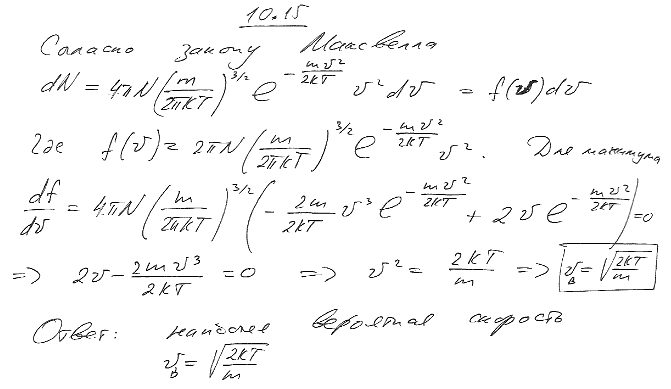 10.15
Согласно закону Максвелла
dN = 4πN(m/2πkT)^3/2 e^(-mv²/2kT) v² dv = f(v)dv
где f(v) = 2πN(m/2πkT)^3/2 e^(-mv²/2kT) v². Для максимума
df/dv = 4πN(m/2πkT)^3/2 (-2m/2kT v³ e^(-mv²/2kT) + 2v e^(-mv²/2kT)) = 0
=> 2v - 2mv³/2kT = 0 => v² = 2kT/m => v_в = √(2kT/m)
Ответ: наиболее вероятная скорость
v_в = √(2kT/m)